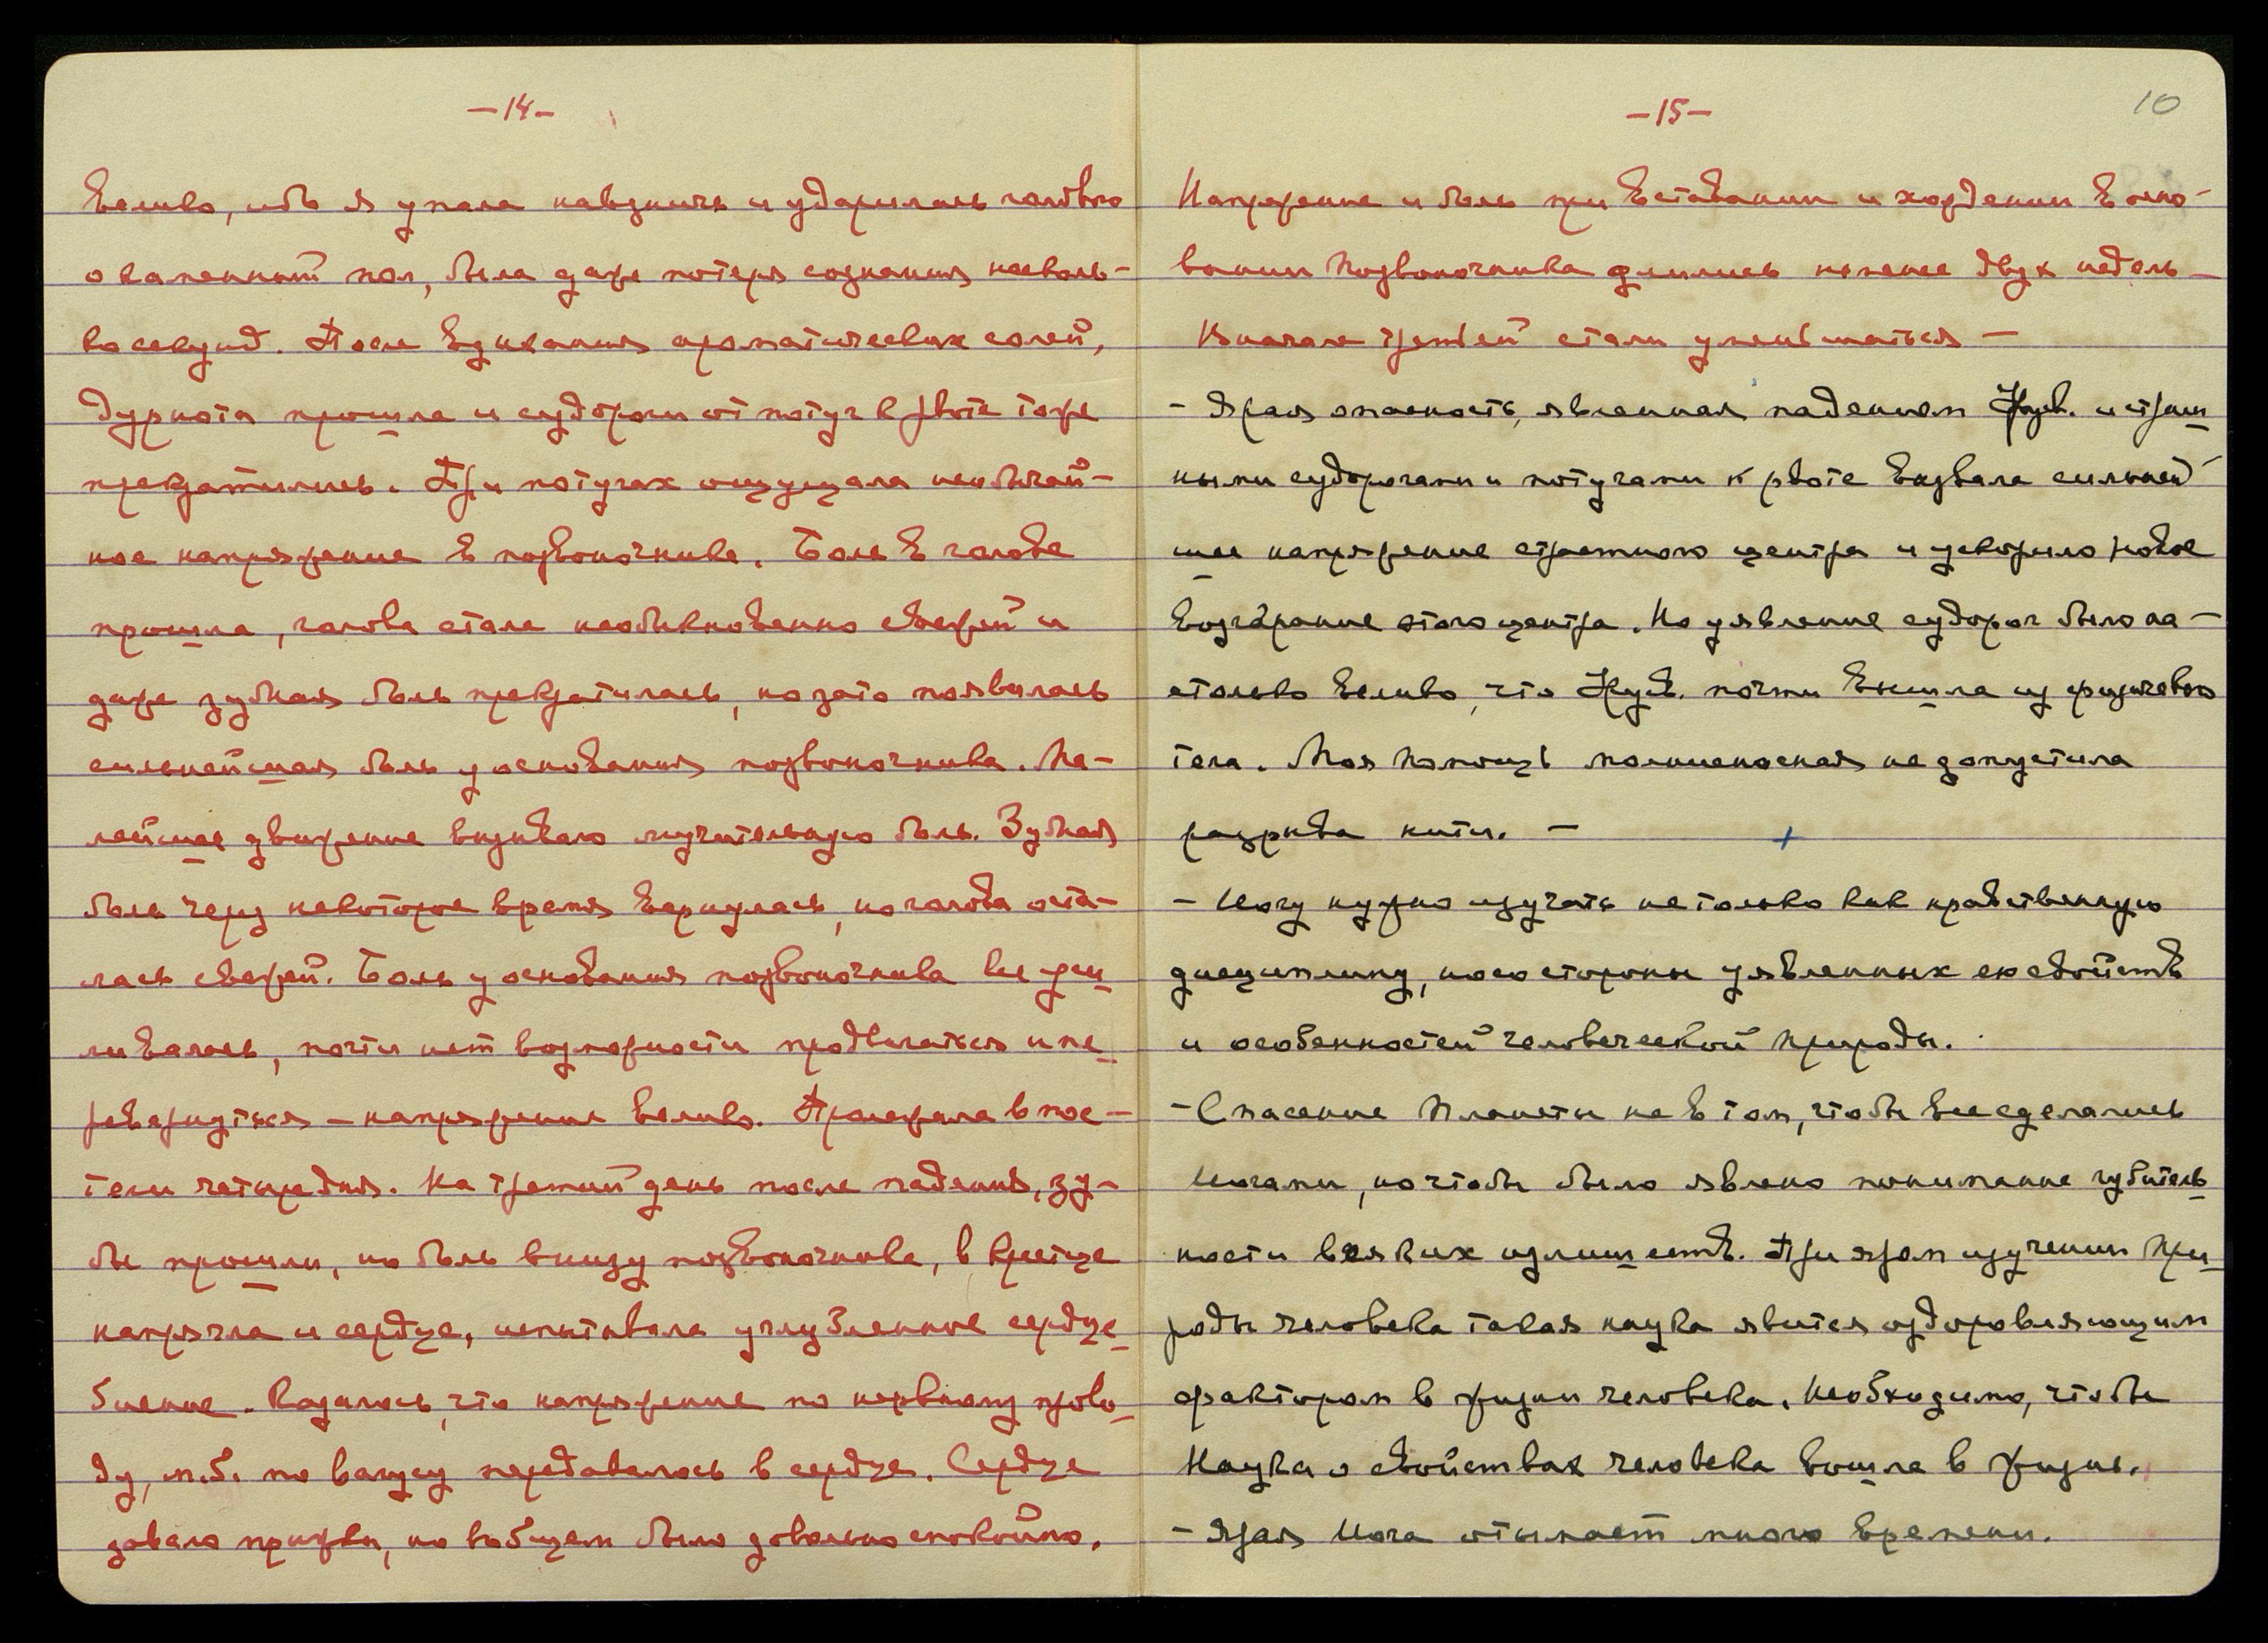 -14-
велико, ибо я упала навзничь и ударилась головою
о каменный пол, была даже потеря сознания несколь-
ко секунд. После вдыхания ароматических солей,
дурнота прошла и судороги от потуг к рвоте тоже
прекратились. При потугах ощущала необычай-
ное напряжение в позвоночнике. Боль в голове
прошла, голова стала необыкновенно свежей и
даже зубная боль прекратилась, но зато появилась
сильнейшая боль у основания позвоночника. Ма-
лейшее движение вызывало мучительную боль. Зубная
боль через некоторое время вернулась, но голова оста-
лась свежей. Боль у основания позвоночника все уси
ливалась, почти нет возможности продвигаться и пе
ревернуться – напряжение велико. Пролежала в пос-
тели четыре дня. На третий день после падения, зу-
бы прошли, но боль внизу позвоночника, в крестце
напрягла и сердце, испытывала углубленное сердце
биение. Казалось, что напряжение по нервному прово
ду, м.б. по вагусу передавалось в сердце. Сердце
давало прыжки, но вообщем было довольно спокойно.
-15-
10
Напряжение и боль при вставании и хождении в осно-
вании позвоночника длились не менее двух недель –
Вначале третьей стали уменьшаться –
- Ярая опасность, явленная падением Урусв. и страш
ными судорогами и потугами к рвоте вызвала сильней
шее напряжение страстного центра и ускорило новое
возгорание этого центра. Но уявление судорог было на-
столько велико, что Урусв. почти вышла из физического
тела. Моя помощь молниеносная не допустила
разрыва нити. –
- Йогу нужно изучать не только как нравственную
дисциплину, но со стороны уявленных ею свойств
и особенностей человеческой природы.
- Спасение Планеты не в том, чтобы все сделались
Йогами, но чтобы было явлено понимание губитель
ности всяких излишеств. При яром изучении при
роды человека такая наука явится оздоровляющим
фактором в жизни человека. Необходимо, чтобы
Наука о свойствах человека вошла в жизнь.
- Ярая Йога отымает много времени.